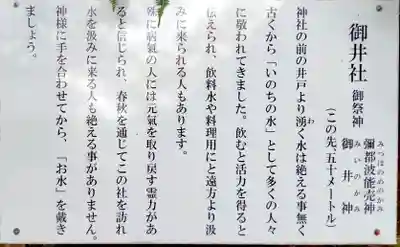 御井社
御祭神
彌都波能売神
みつはのめのかみ
御井神
みいのかみ
(この先:五十メートル)
神社の前の井戸より湧く水は絶える事無く
わ
古くから「いのちの水」として多くの人々
に敬われてきました。飲むと活力を得ると
伝えられ、飲料水や料理用にと遠方より汲
みに来られる人もあります。
殊に病氣の人には元氣を取り戻す霊力があ
ると信じられ、春秋を通じてこの社を訪れ
水を汲みに来る人も絶える事がありません。
神様に手を合わせてから、「お水」を戴き
ましょう。